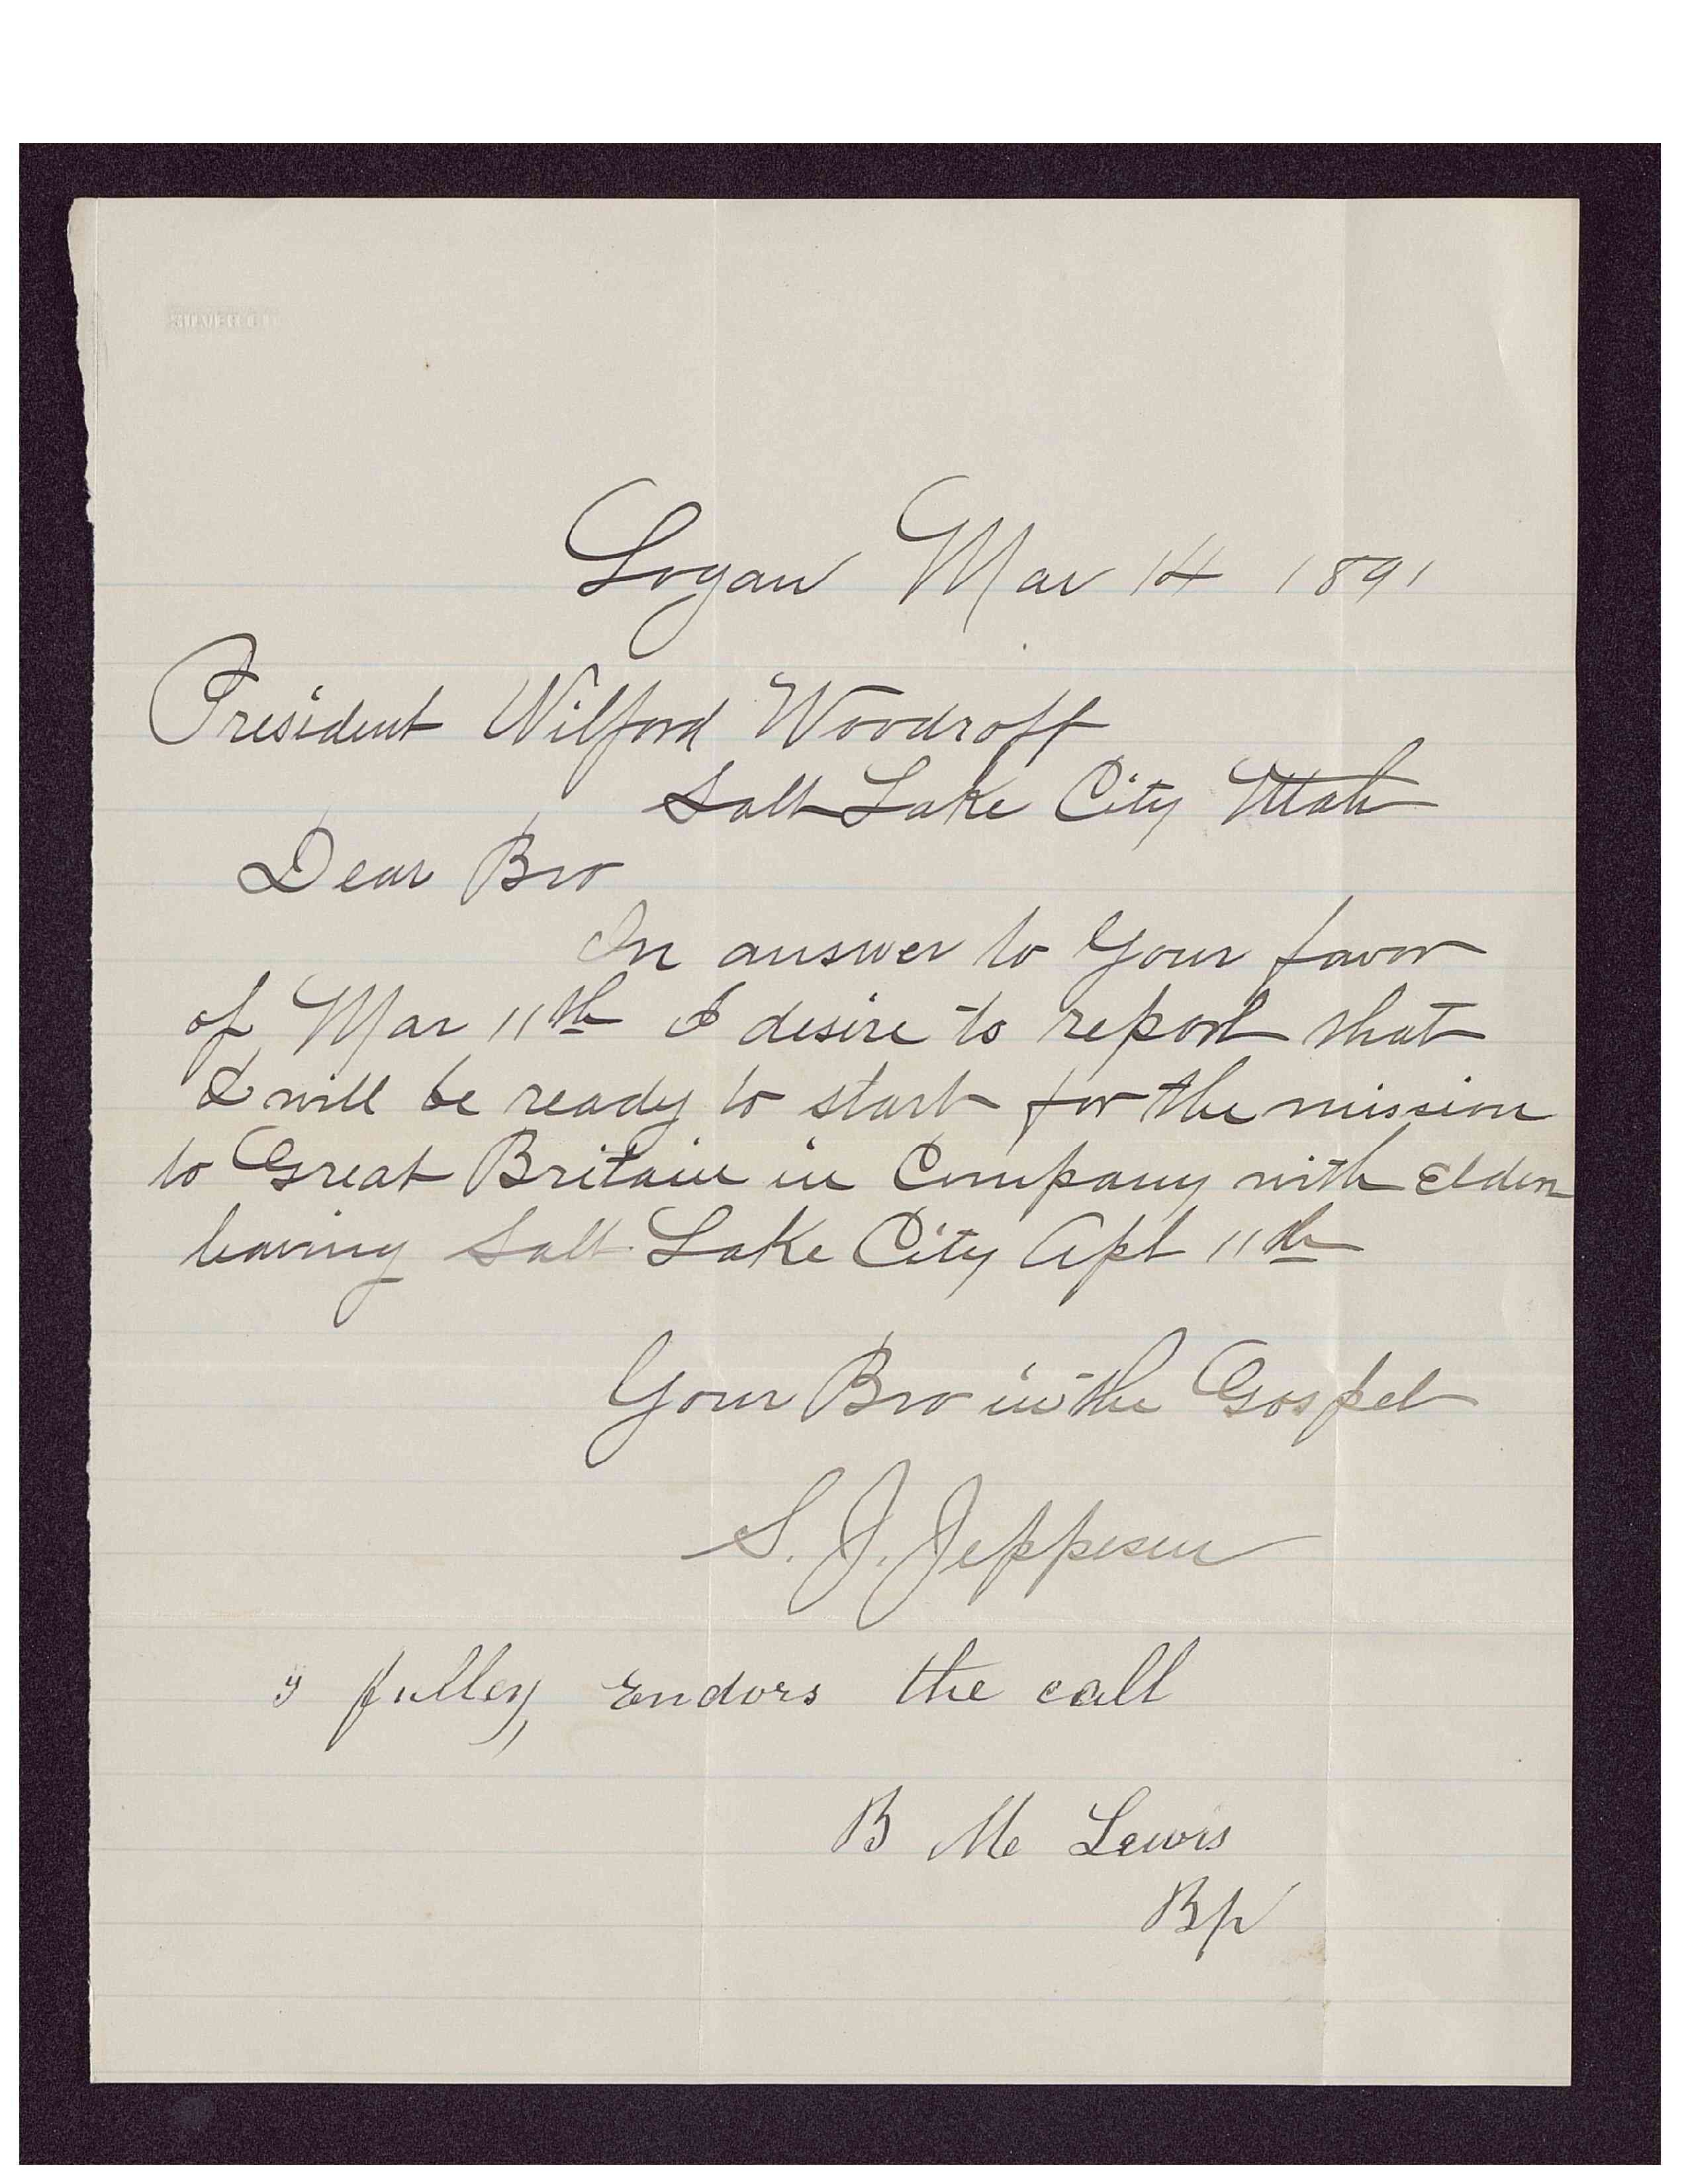 Logan Mar 14 1891
President Wilford Woodroff
Salt Lake City Utah
Dear Bro
In answer to Your favor
of Mar 11th I desire to report that
I will be ready to start for the mission
to Great Britain in Company with Elders
leaving Salt Lake City Apl 11th
Your Bro in the Gospel
S. J. Jeppesen
I fulley Endors the call
B M Lewis
Bp